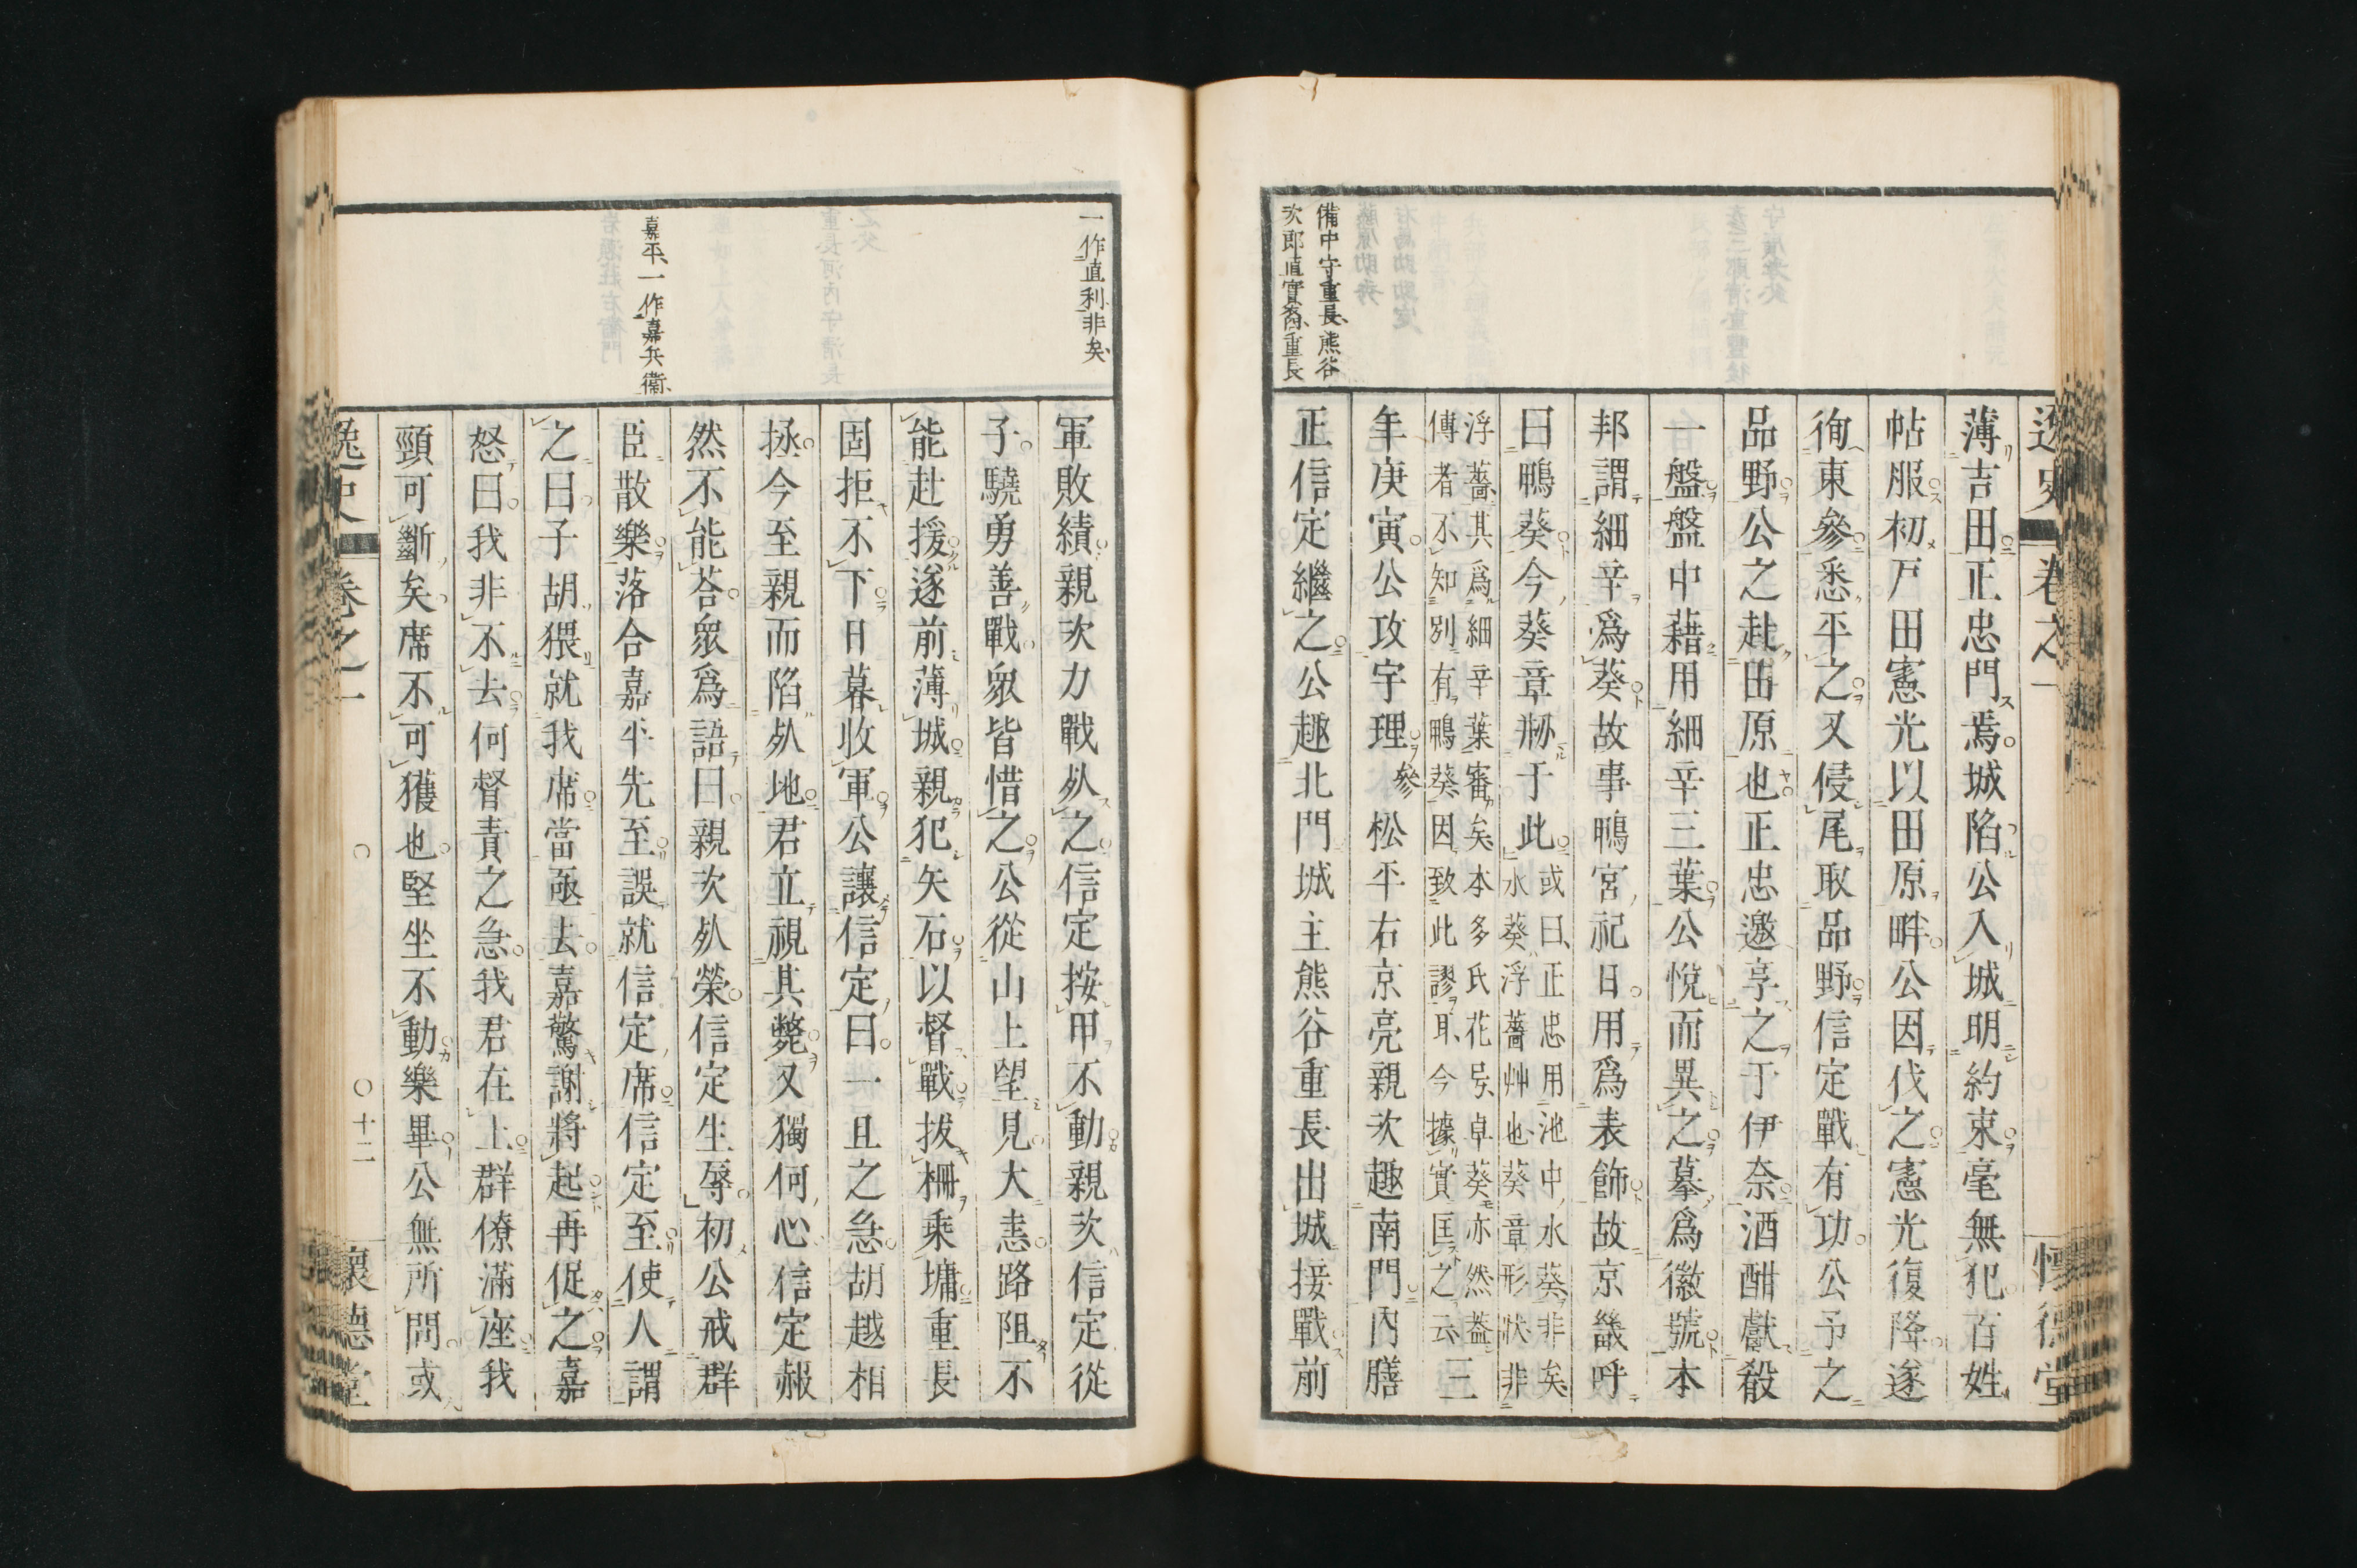 逸史 卷之一 懷德堂
薄吉田正忠門焉城陷公入城明約束毫無犯百姓
帖服初戸田憲光以田原畔公因伐之憲光復降遂
徇東參悉平之又侵尾取品野信定戰有功公予之
品野公之赴田原也正忠邀享之于伊奈酒酣獻殽
一盤盤中藉用細辛三葉公悅而異之摹爲徽號本
邦謂細辛爲葵故事鴨宮祀日用爲表飾故京畿呼
曰鴨葵今葵章昉于此
或曰正忠用池中水葵非矣
水葵浮薔艸也葵章形狀非
浮薔其爲細辛葉審矣本多氏花号卓葵亦然蓋
傳者不知別有鴨葵因致此謬耳今據實匡之云
三
年庚寅公攻宇理參松平右京亮親次趣南門內膳
正信定繼之公趣北門城主熊谷重長出城接戰前
備中守重長熊谷
次郎直實裔重長
一作直利非矣
軍敗績親次力戰死之信定按甲不動親次信定從
子驍勇善戰衆皆惜之公從山上望見大恚路阻不
能赴援遂前薄城親犯矢石以督戰拔柵乘墉重長
固拒不下日暮收軍公讓信定曰一且之急胡越相
拯今至親而陷死地君立視其斃又獨何心信定赧
然不能荅衆爲語曰親次死榮信定生辱初公戒群
臣散樂落合嘉平先至誤就信定席信定至使人謂
之曰子胡猥就我席當亟去嘉驚謝將起再促之嘉
怒曰我非不去何督責之急我君在上群僚滿座我
頸可斷矣席不可獲也堅坐不動樂畢公無所問或
嘉平一作嘉兵衞
逸史 卷之一 十二 懷德堂